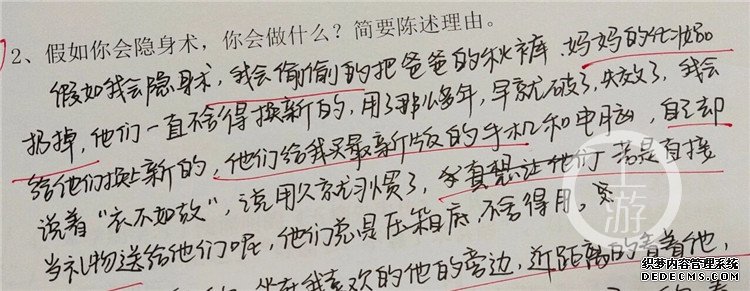 2、假如你会隐身术，你会做什么？简要陈述理由。
假如我会隐身术，我会偷偷的把爸爸的秋裤、妈妈的化妆品
扔掉，他们一直不舍得换新的，用了那么多年，早就破了，失效了，我会
给他们换上新的，他们给我买最新版的手机和电脑，自己却
说着“衣不如故”，说用久就习惯了，我真想让他们 若是直接
当礼物送给他们呢，他们总是压箱底，不舍得用。
坐在我喜欢的他的旁边，近距离的看着他，
上游
织梦内容管理系统
DEDECMS.COM